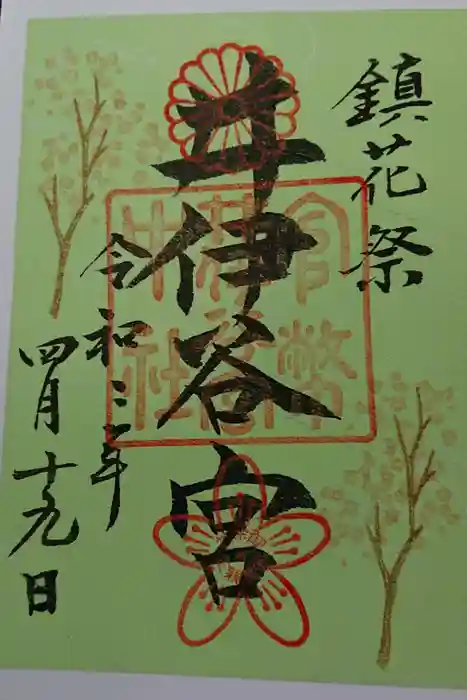 鎮花祭
井伊谷宮
令和三年
四月十九日
官幣
中社